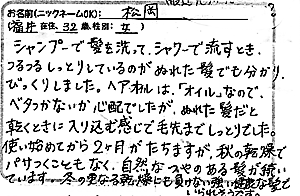 お名前(ニックネームOK): 松岡
(福井 在住、32歳、性別: 女)
シャンプーで髪を洗って、シャワーで流すとき、
つるつるしっとりしているのがぬれた髪でも分かり、
びっくりしました。ヘアオイルは、「オイル」なので、
ベタつかないか心配でしたが、ぬれた髪だと
乾くときに入り込む感じで毛先までしっとりでした。
使い始めてから2ヶ月がたちますが、秋の乾燥で
パサつくこともなく、自然なつやのある髪が続い
ています…冬の更なる乾燥にも負けない強い健康な髪